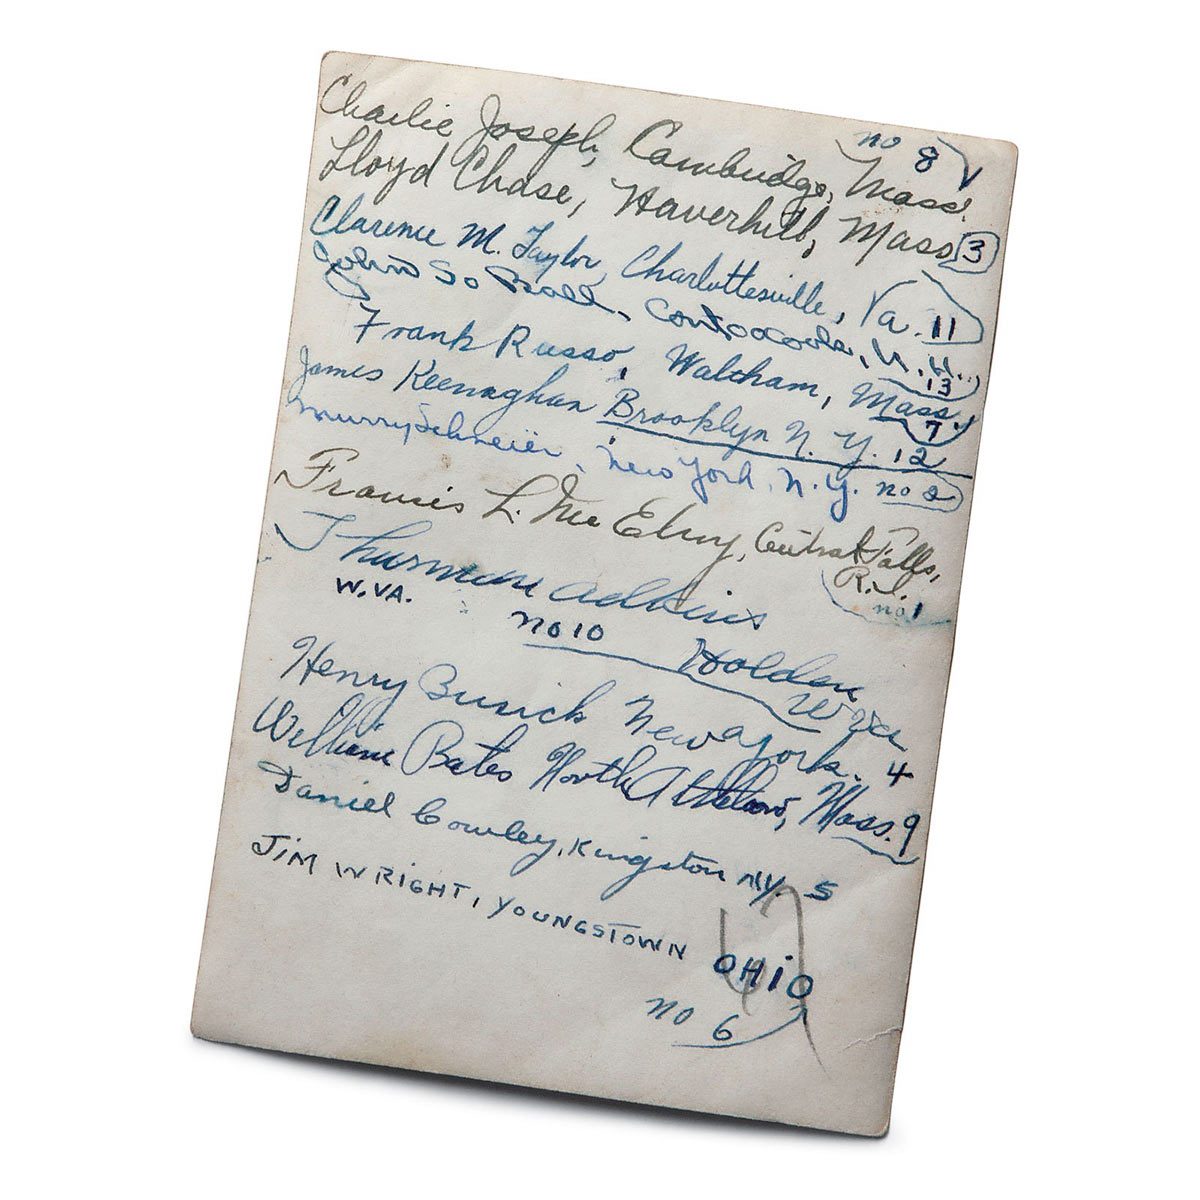 no 8
Charlie Joseph, Cambridge, Mass.
Lloyd Chase, Haverhill, Mass 3
Clarence M. Taylor, Charlottesville, Va. 11
John So N.H.. 13
Frank Russo, Waltham, Mass. 7
James Keenaghan Brooklyn N. Y. 12
Murry Schneier, New York, N.Y. no 2
Francis L. Mc Elroy, Central Falls,
R.I.
no 1
Thurman Adkins
W.VA.
no 10 Holden
W Va
Henry Busick New York. 4
William Bates North Attleboro, Mass. 9
Daniel Cowley, Kingston N.Y. 5
JIM WRIGHT, YOUNGSTOWN OHIO
no 6